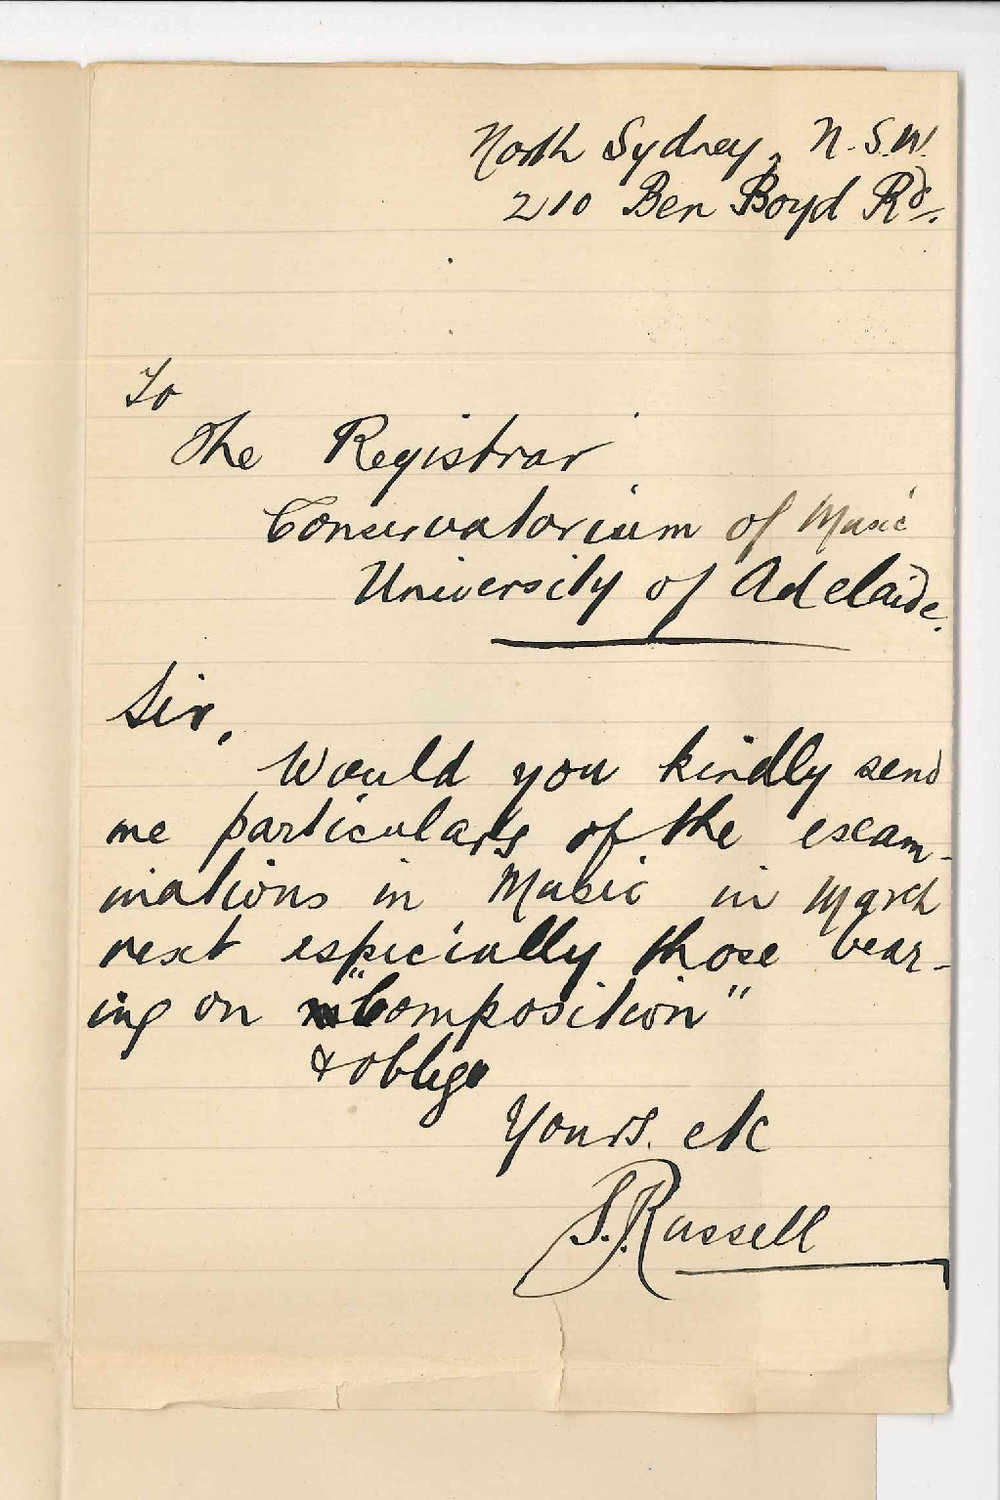 North Sydney, N.S.W.
210 Ben Boyd Rd.
To
The Registrar
Conservatorium of Music
University of Adelaide.
Sir,
Would you kindly send
me particulars of the exam-
inations in Music in March
next especially those bear-
ing on "Composition"
& oblige
Yours. etc
S. Russell